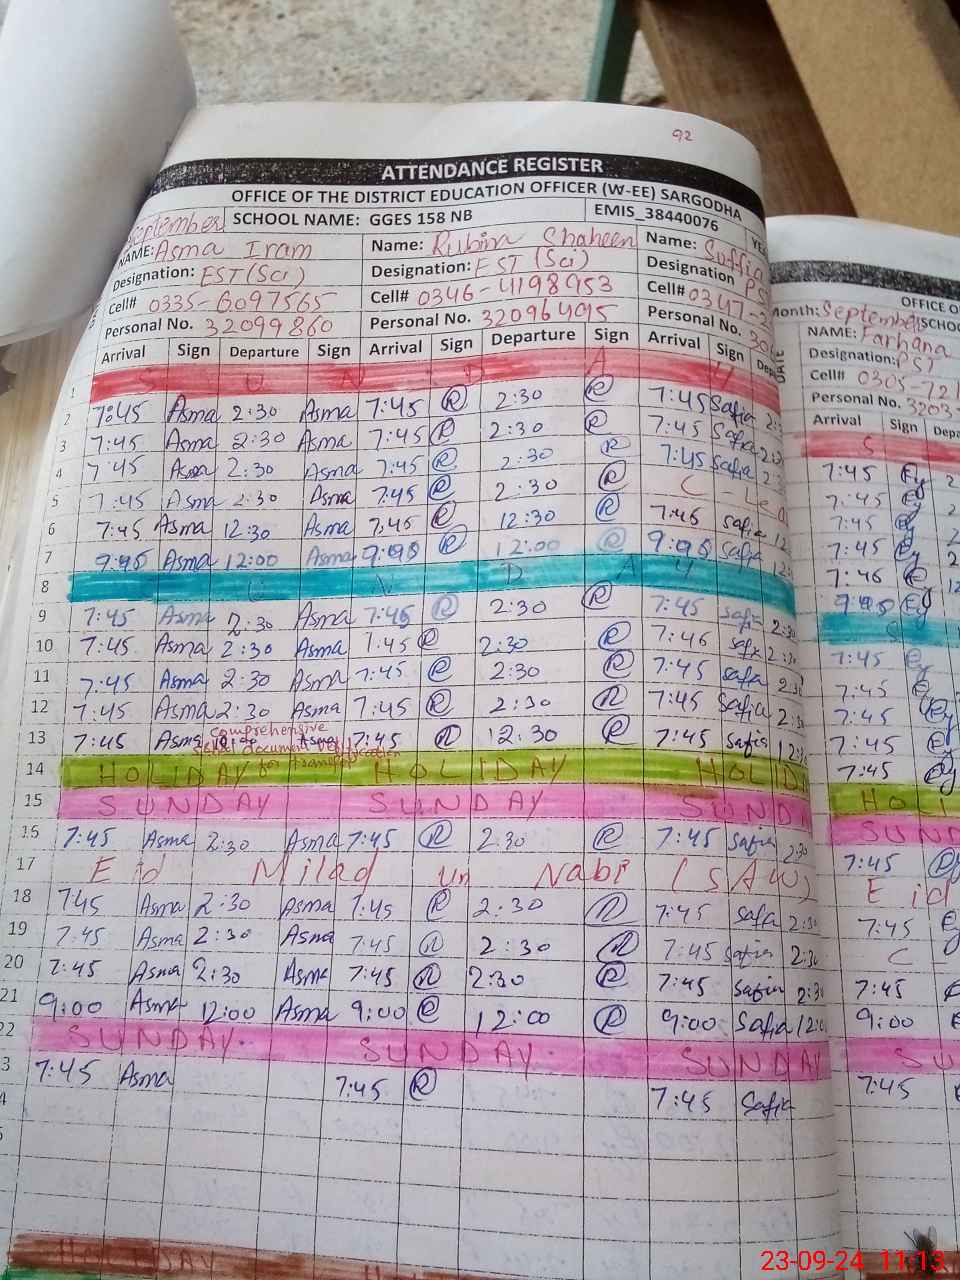 92
ATTENDANCE REGISTER
OFFICE OF THE DISTRICT EDUCATION OFFICER (W-EE) SARGODHA
September SCHOOL NAME: GGES 158 NB EMIS_38440076
NAME: Asma Iram Name: Rubina Shaheen Name: Saffia
Designation: EST (Sci) Designation: EST (Sci) Designation PST
Cell# 0335-6097565 Cell# 0346-4198953 Cell# 0347-
Personal No. 32099860 Personal No. 32096495 Personal No. 30
Arrival Sign Departure Sign Arrival Sign Departure Sign Arrival Sign
1 S U N D A Y
2 7:45 Asma 2:30 Asma 7:45 R 2:30 R 7:45 Safia
3 7:45 Asma 2:30 Asma 7:45 R 2:30 R 7:45 Safia
4 7:45 Asma 2:30 Asma 7:45 R 2:30 R 7:45 Safia
5 7:45 Asma 2:30 Asma 7:45 R 2:30 R C-Lea
6 7:45 Asma 12:30 Asma 7:45 R 12:30 R 7:45 safia
7 Asma 12:00 Asma R 12:00 R safia
8 S U N D A Y
9 7:45 Asma 2:30 Asma 7:45 R 2:30 R 7:45 safia 2:30
10 7:45 Asma 2:30 Asma 7:45 R 2:30 R 7:46 safia 2:30
11 7:45 Asma 2:30 Asma 7:45 R 2:30 R 7:45 safia 2:30
12 7:45 Asma 2:30 Asma 7:45 R 2:30 R 7:45 Safia 2:30
comprehensive
13 7:45 Asma Asma 7:45 R 12:30 R 7:45 Safia
document verification
for transfer
14 HOLIDAY HOLIDAY HOLID
15 SUNDAY SUNDAY SUND
15 7:45 Asma 2:30 Asma 7:45 R 2:30 R 7:45 Safia 2:30
17 Eid Milad un Nabi (SAW)
18 7:45 Asma 2:30 Asma 7:45 R 2:30 R 7:45 Safia 2:30
19 7:45 Asma 2:30 Asma 7:45 R 2:30 R 7:45 Safia 2:30
20 7:45 Asma 2:30 Asma 7:45 R 2:30 R 7:45 Safia 2:30
21 9:00 Asma 12:00 Asma 9:00 R 12:00 R 9:00 Safia 12:00
22 SUNDAY SUNDAY SUNDAY
3 7:45 Asma 7:45 R 7:45 Safia
4
5
HOLIDAY
OFFICE O
Month: September SCHOO
NAME: Farhana
Designation: PST
Cell# 0305-721
Personal No. 3203
DATE Arrival Sign Depa
S
7:45
7:45
7:45
7:45
7:46
S
7:45
7:45
7:45
7:45
7:45
HOLI
SUND
7:45
Eid
7:45
C
7:45
9:00
SU
7:45
23-09-24 11:13